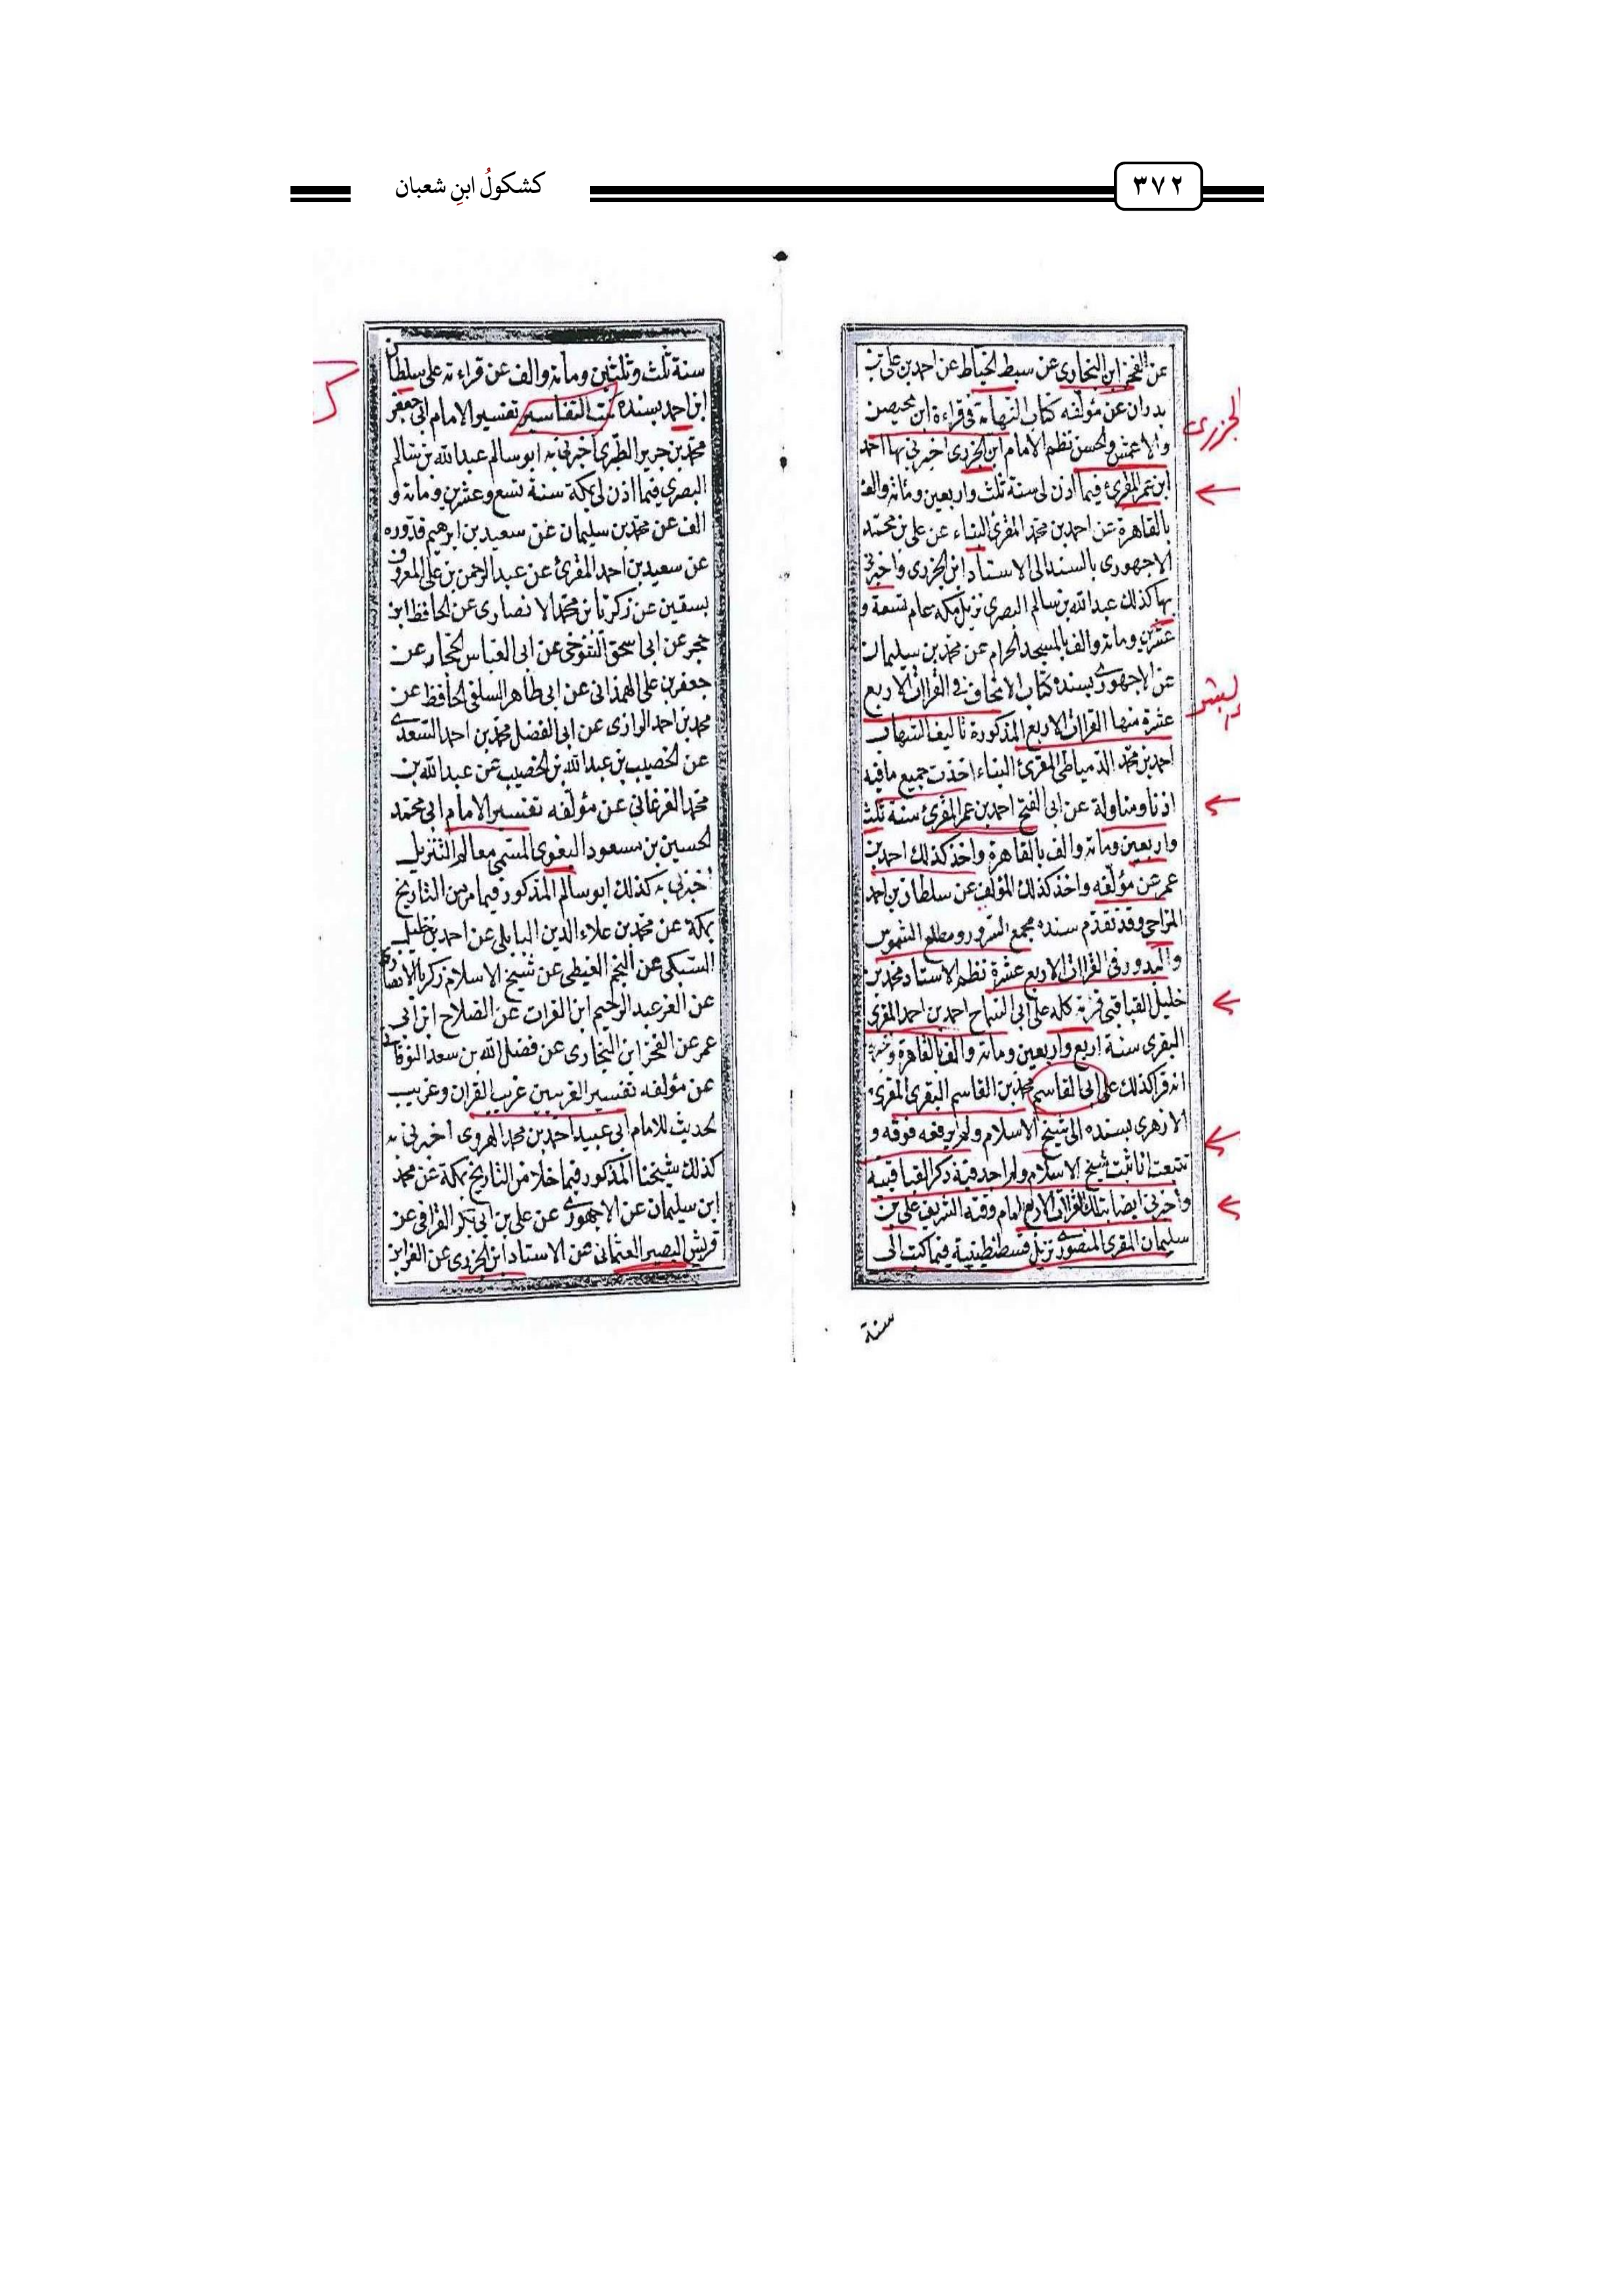 ٣٧٢
كشكولُ ابنِ شعبان
عن الفخر ابن البخارى عن سبط الخياط عن احمد بن على بن
بدران عن مؤلفه كتاب النهاية فى قراءة ابن محيصن
والاعمش والحسن نظم الامام ابن الجزرى اخبرنى بها احمد
ابن عمر المقرئ فيما اذن لى سنة ثلث واربعين ومائة والف
بالقاهرة عن احمد بن محمد المقرئ البناء عن على بن محمد
الاجهورى بالسند الى الاستاد ابن الجزرى واخبرنى
بها كذلك عبد الله بن سالم البصرى نزيل مكة عام تسعة و
عشرين ومائة والف بالمسجد الحرام عن محمد بن سليمان
عن الاجهورى بسنده كتاب الاتحاف فى القرات الاربع
عشرة منها القرات الاربع المذكورة تاليف الشهاب
احمد بن محمد الدمياطى المقرئ البناء اخذت جميع ما فيه
اذنا ومناولة عن ابى الفتح احمد بن عمر المقرئ سنة ثلث
واربعين ومائة والف بالقاهرة واخذ كذلك احمد بن
عمر عن مؤلفه واخذ كذلك المؤلف عن سلطان بن احمد
المزاحى وقد تقدم سنده مجمع السرور ومطلع الشموس
والبدور فى القرات الاربع عشرة نظم الاستاد محمد بن
خليل القباقبى كله على ابى السماح احمد بن احمد المقرى
البقرى سنة اربع واربعين ومائة والف بالقاهرة
انه قرا كذلك على ابى القاسم محمد بن القاسم البقرى المقرى
الازهرى بسنده الى شيخ الاسلام ولم يرفعه فوقه و
تتبعت اثاثبت شيخ الاسلام ولم اجد فيه ذكر القباقبية
واخبرنى ايضا بتلك القرات الاربع امام وقته الشريف على بن
سليمان المقرى المنصورى نزيل قسطنطينية فيما كتب الى
سنة
الجزرى
البشر
سنة ثلث وثلثين ومائة والف عن قراءته على سلطان
ابن احمد بسنده كتب التفاسير تفسير الامام ابى جعفر
محمد بن جرير الطبرى اخبرنى به ابو سالم عبد الله بن سالم
البصرى فيما اذن لى بمكة سنة تسع وعشرين ومائة و
الف عن محمد بن سليمان عن سعيد بن ابرهيم قدوره
عن سعيد بن احمد المقرئ عن عبد الرحمن بن على المعروف
بسقين عن زكريا بن محمد الانصارى عن الحافظ ابن
حجر عن ابى اسحق التنوخى عن ابى العباس الحجار عن
جعفر بن على الهمذانى عن ابى طاهر السلفى الحافظ عن
محمد بن احمد الرازى عن ابى الفضل محمد بن احمد السعدى
عن الخصيب بن عبد الله بن الخصيب عن عبد الله بن
محمد الفرغانى عن مؤلفه تفسير الامام ابى محمد
الحسين بن مسعود البغوى المسمى معالم التنزيل
اخبرنى به كذلك ابو سالم المذكور فيما مر من التاريخ
بمكة عن محمد بن علاء الدين البابلى عن احمد بن خليل
السبكى عن النجم الغيطى عن شيخ الاسلام زكريا الانصارى
عن العز عبد الرحيم ابن الفرات عن الصلاح ابن ابى
عمر عن الفخر ابن البخارى عن فضل الله بن سعد النوقانى
عن مؤلفه تفسير الغريبين غريب القران وغريب
الحديث للامام ابى عبيد احمد بن محمد الهروى اخبرنى به
كذلك شيخنا المذكور فيما خلا من التاريخ بمكة عن محمد
ابن سليمان عن الاجهورى عن على بن ابى بكر القرافى عن
قريش البصير العثمانى عن الاستاد ابن الجزرى عن العز ابن